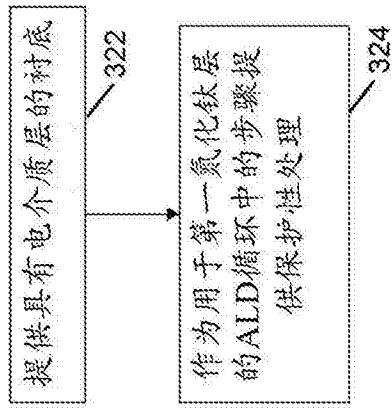 提供具有电介质层的衬底
322
作为用于第一氮化钛层
的ALD循环中的步骤提
供保护性处理
324